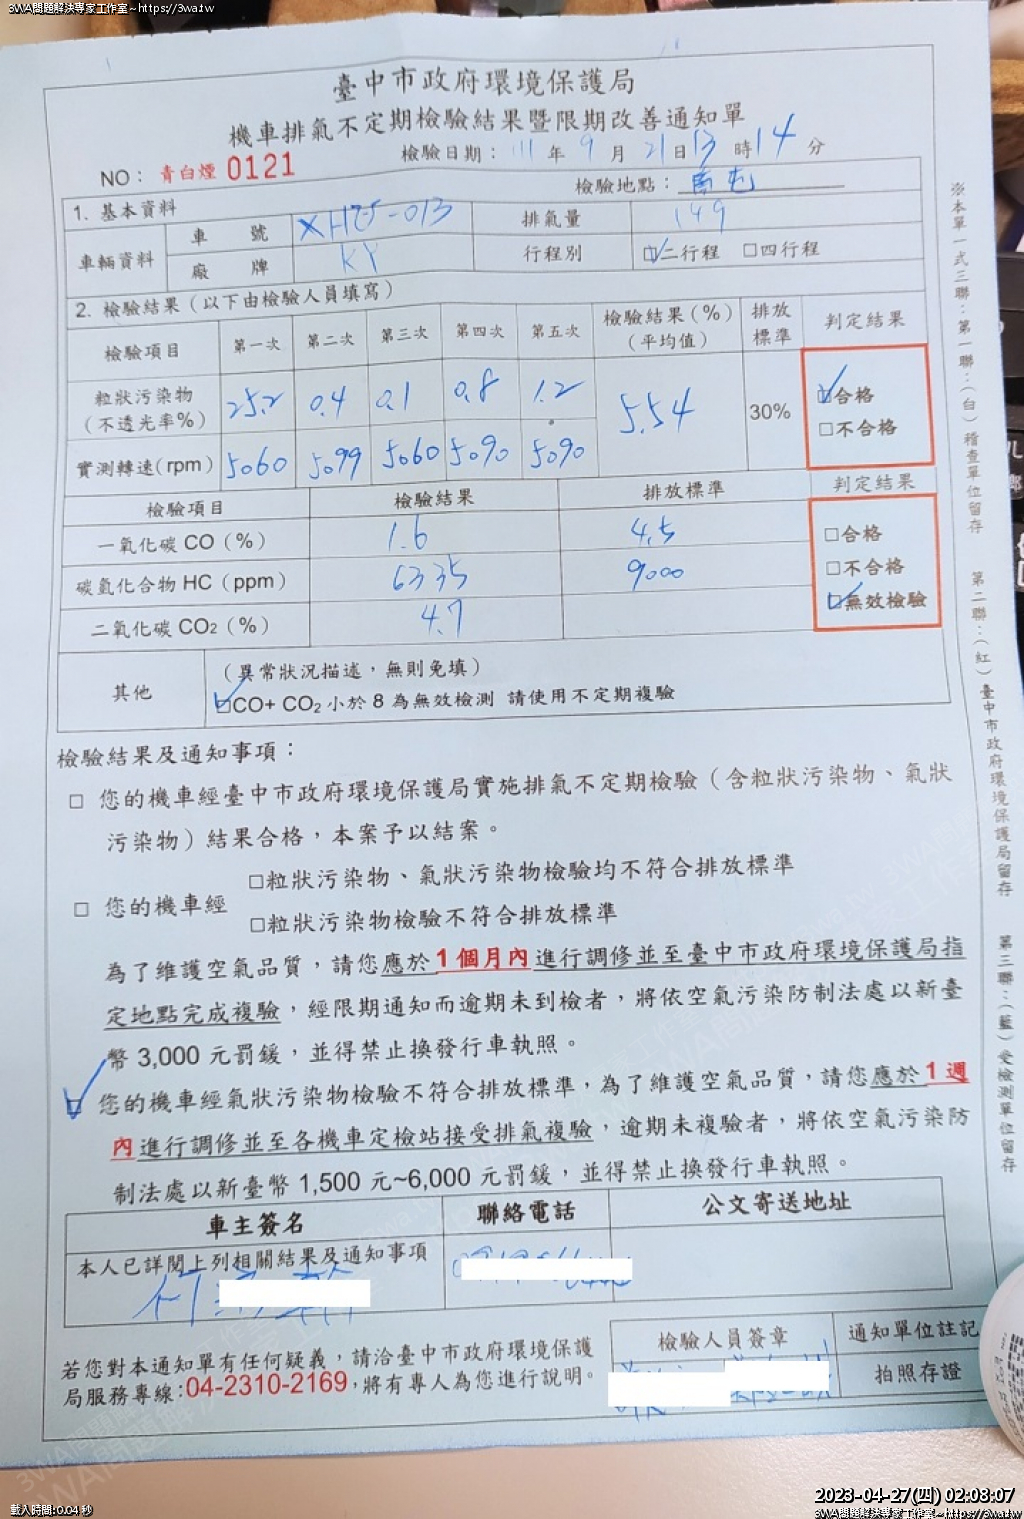 3WA問題解決專家工作室~https://3wa.tw
臺中市政府環境保護局
機車排氣不定期檢驗結果暨限期改善通知單
檢驗日期：111年9月21日13時14分
NO：青白煙 0121
檢驗地點：
1. 基本資料
車輛資料 車號 排氣量 149
廠牌 KY 行程別 ☑二行程 □四行程
2. 檢驗結果（以下由檢驗人員填寫）
檢驗項目 第一次 第二次 第三次 第四次 第五次 檢驗結果(％)（平均值） 排放標準 判定結果
粒狀污染物（不透光率%） 25.2 0.4 0.1 0.8 1.2 5.54 30% ☑合格 □不合格
實測轉速(rpm) 5060 5099 5060 5090 5090
檢驗項目 檢驗結果 排放標準 判定結果
一氧化碳 CO（%） 1.6 4.5 □合格
碳氫化合物 HC（ppm） 6335 9000 □不合格
二氧化碳 CO2（%） 4.7 ☑無效檢驗
其他 （異常狀況描述，無則免填）
☑CO+ CO2 小於 8 為無效檢測 請使用不定期複驗
檢驗結果及通知事項：
□ 您的機車經臺中市政府環境保護局實施排氣不定期檢驗（含粒狀污染物、氣狀
污染物）結果合格，本案予以結案。
□ 您的機車經
□粒狀污染物、氣狀污染物檢驗均不符合排放標準
□粒狀污染物檢驗不符合排放標準
為了維護空氣品質，請您應於1個月內進行調修並至臺中市政府環境保護局指
定地點完成複驗，經限期通知而逾期未到檢者，將依空氣污染防制法處以新臺
幣 3,000 元罰鍰，並得禁止換發行車執照。
☑ 您的機車經氣狀污染物檢驗不符合排放標準，為了維護空氣品質，請您應於1週
內進行調修並至各機車定檢站接受排氣複驗，逾期未複驗者，將依空氣污染防
制法處以新臺幣 1,500 元~6,000 元罰鍰，並得禁止換發行車執照。
車主簽名 聯絡電話 公文寄送地址
本人已詳閱上列相關結果及通知事項
檢驗人員簽章 通知單位註記
拍照存證
若您對本通知單有任何疑義，請洽臺中市政府環境保護
局服務專線:04-2310-2169,將有專人為您進行說明。
※本單一式三聯：第一聯：（白）稽查單位留存 第二聯：（紅）臺中市政府環境保護局留存 第三聯：（藍）受檢測單位留存
載入時間:0.04 秒
2023-04-27(四) 02:08:07
3WA問題解決專家工作室~https://3wa.tw